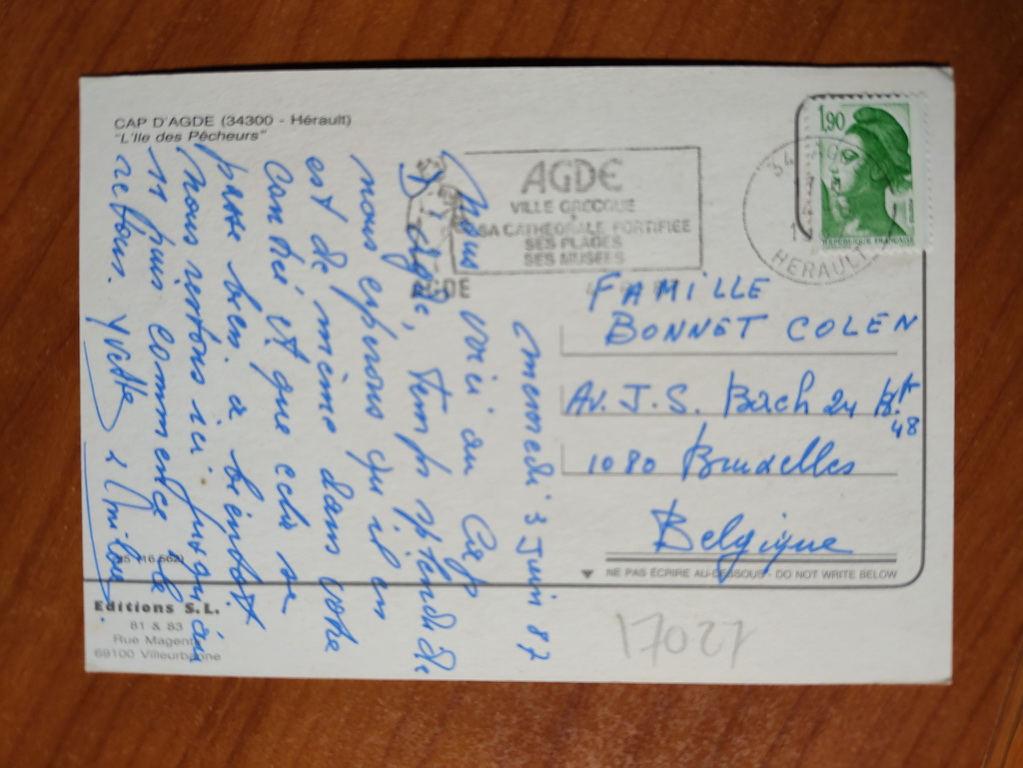 CAP D'AGDE (34300 - Hérault)
"L'Ile des Pêcheurs"
AGDE
VILLE GRECQUE
SA CATHEDRALE FORTIFIEE
SES PLAGES
SES MUSEES
AGDE
34 AGDE
HERAULT
1,90
REPUBLIQUE FRANÇAISE
mercredi 3 Juin 87
Nous voici au Cap
D'Agde, temps splendide
nous espérons qu'il en
est de même dans votre
contrée et que cela se
passe bien. à bientôt
Nous restons ici jusqu'au
11 puis commence le
retour. Yvette &
FAMILLE
BONNET COLEN
Av. J.S. Bach 24 Bt
48
1080 Bruxelles
Belgique
NE PAS ÉCRIRE AU-DESSOUS - DO NOT WRITE BELOW
Editions S.L.
81 & 83
Rue Magenta
69100 Villeurbanne
17021